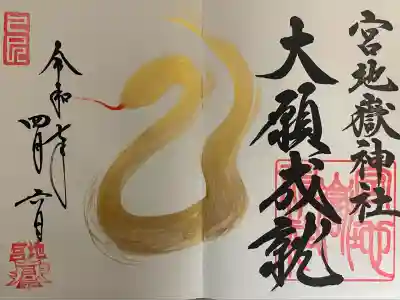 宮地嶽神社
大願成就
令和七年
四月六日
己巳